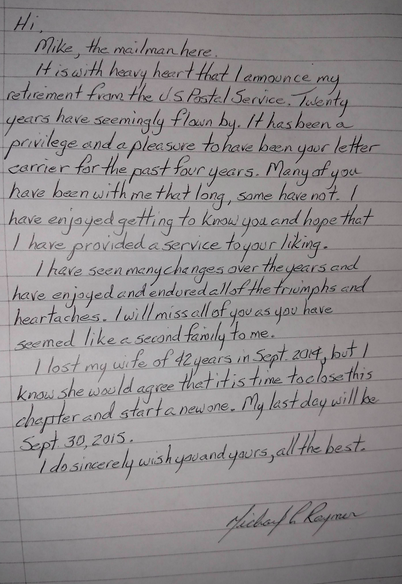 Hi,
Mike, the mailman here.
It is with heavy heart that I announce my
retirement from the U.S. Postal Service. Twenty
years have seemingly flown by. It has been a
privilege and a pleasure to have been your letter
carrier for the past four years. Many of you
have been with me that long, some have not. I
have enjoyed getting to know you and hope that
I have provided a service to your liking.
I have seen many changes over the years and
have enjoyed and endured all of the triumphs and
heartaches. I will miss all of you as you have
seemed like a second family to me.
I lost my wife of 42 years in Sept. 2014, but I
know she would agree that it is time to close this
chapter and start a new one. My last day will be
Sept 30, 2015.
I do sincerely wish you and yours, all the best.
Michael